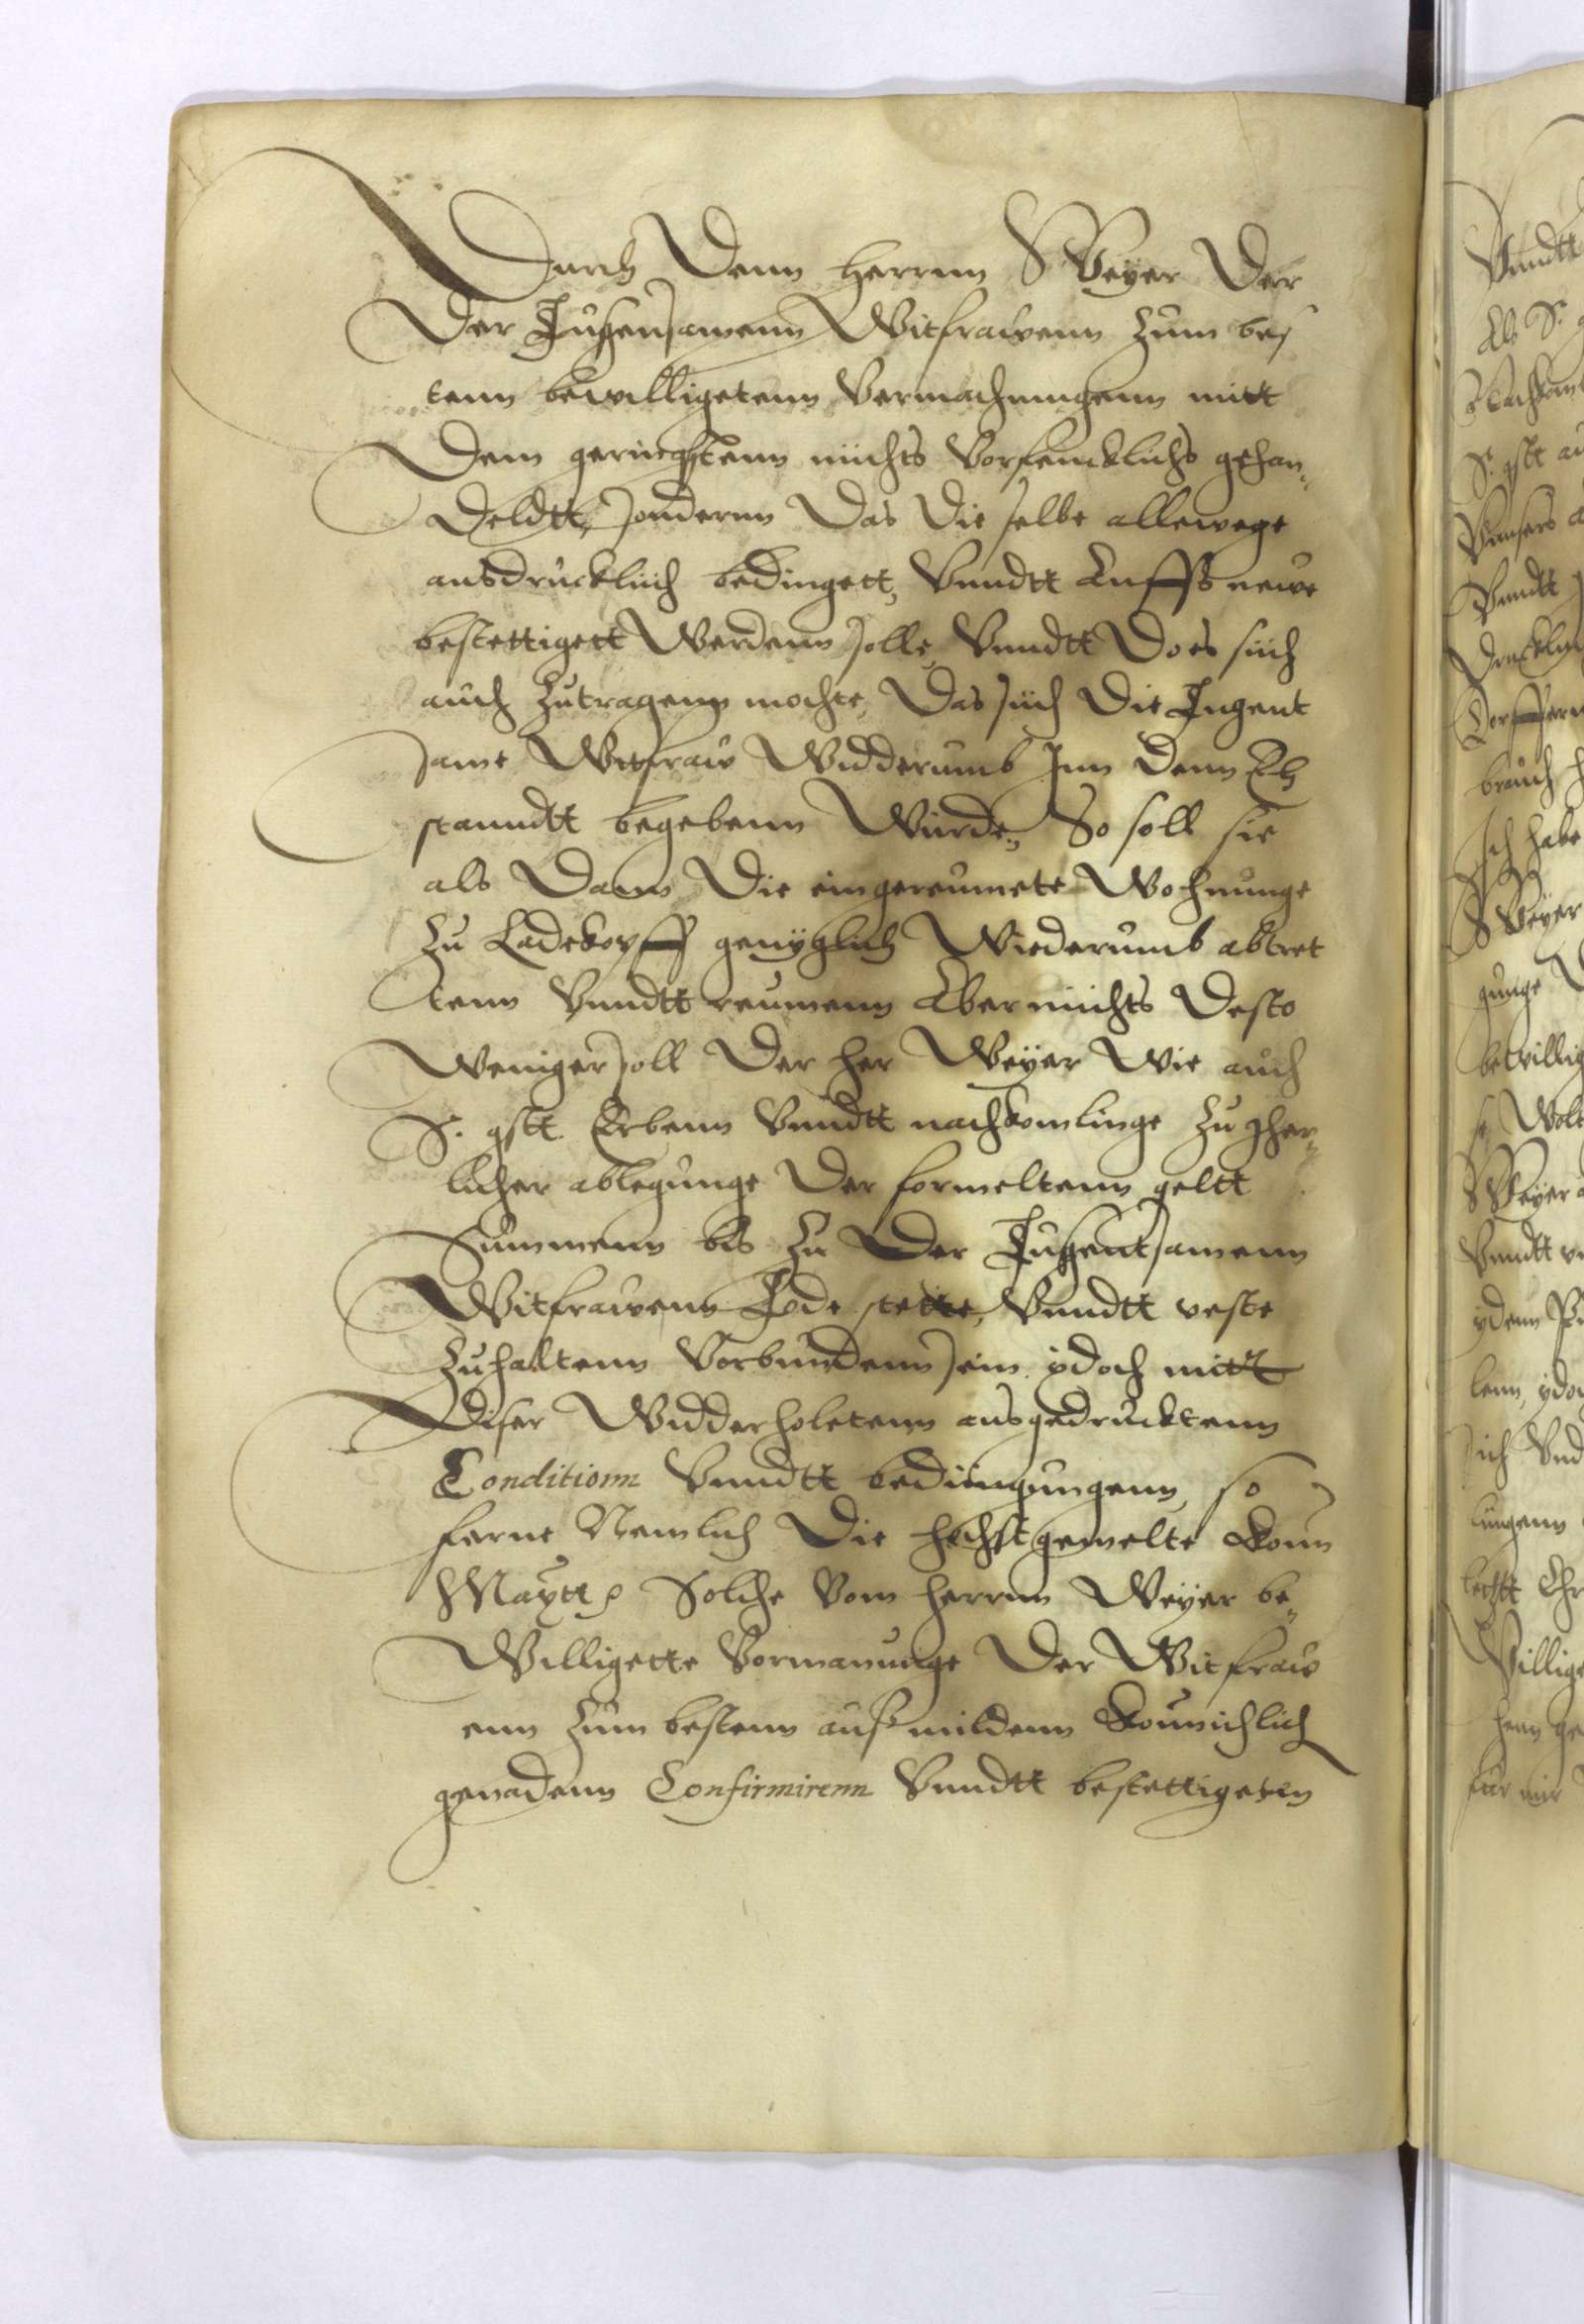 Durch Denn Herrnn Weyer Der
Der Tugensamenn Witfrawenn Zum bes
tenn bewilligetenn Vermachnungenn mitt
Dem geringstenn nichts Vorfencklichs gehan„
Deldtt, sonderenn Das Die selbe allewege
ausdrucklich bedingett, Vnndtt Auffs newe
bestettigett Werdenn solle, Vnndtt Do es sich
auch Zutragenn mochte, Das sich Die Tugent
same Witfraw Widderumb Inn Denn Eh
stanndtt begebenn Wurde, So soll sie
als Dann Die eingereumete Wohnunge
Zu Ladekopff Wiederumb abtret
tenn Vnndtt reumenn Aber nichts Desto
Weniger soll Der her Weyer Wie auch
S. gstt. Erbenn Vnndtt nachkomlinge Zu Jher„
licher ablegunge Der formeltenn geltt
Summenn bis Zu Der Tugentsamenn
Witfrawenn Tode stette, Vnndtt veste
Zuhalltenn Vorbundenn sein ydoch mitt
Diser Widderholetenn ausgedrucktenn
Conditionn Vnndtt bedingungenn, so
ferne Nemlich Die hochstgemelte Konn
Maytt Solche Vom Herrnn Weyer be„
Willigette Vormanunge Der Witfraw
enn Zum bestenn auß mildenn Konnichlich
genadenn Confirmirenn Vnndtt bestettigeten